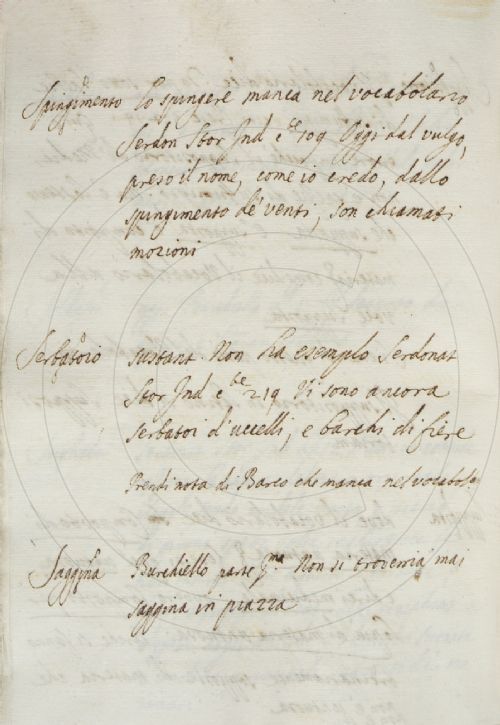 Spingimento Lo spingere manca nel vocabolario
Serdon Stor Ind c 109 Oggi dal vulgo,
preso il nome, come io credo, dallo
spingimento de' venti, son chiamati
mozioni
Serbatoio sustant. Non ha esemplo Serdonat
Stor Ind c 219 Vi sono ancora
serbatoi d'uccelli, e barchi di fiere
Prendi nota di Barco che manca nel vocabol.
Saggina Burchiello parte pma Non si troverria mai
saggina in piazza